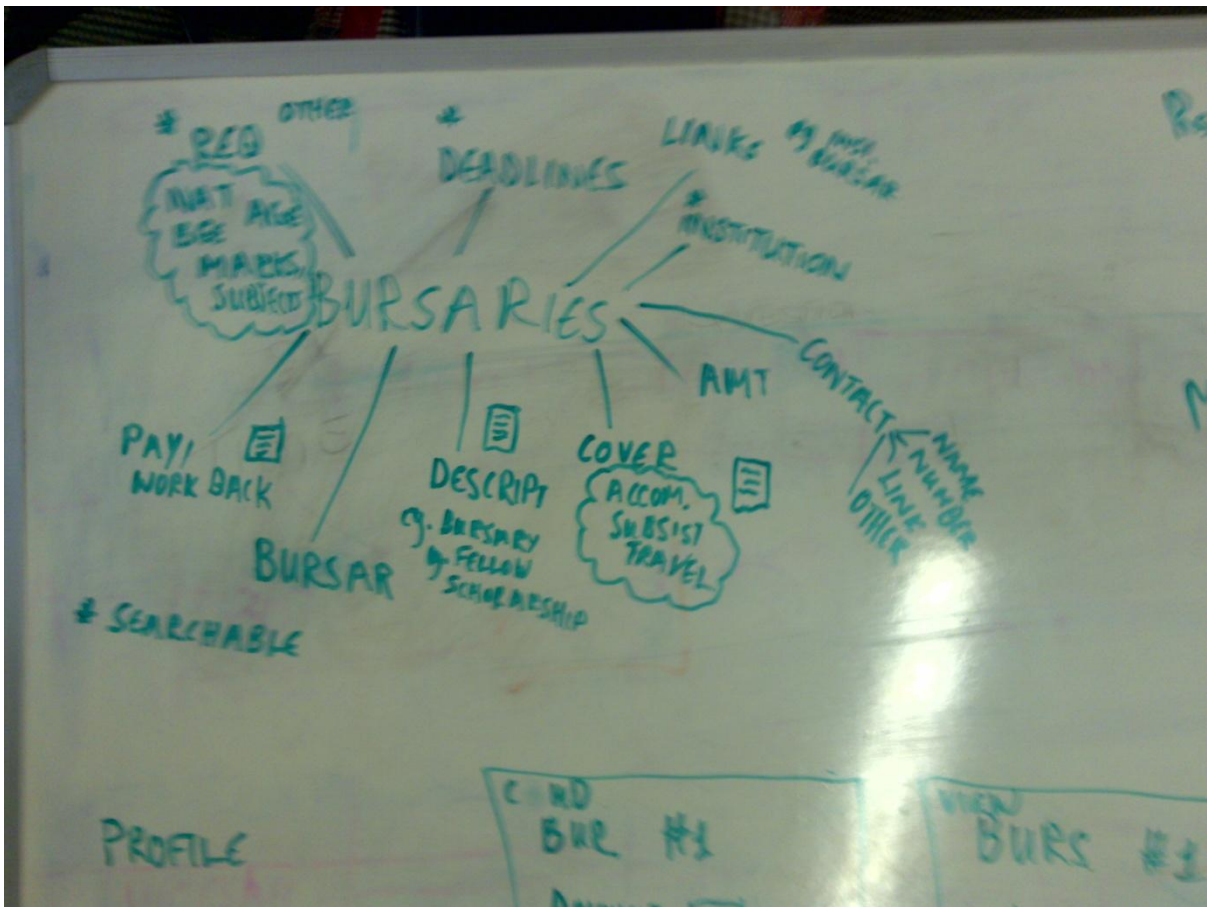 * REQ OTHER
NAT AGE
BEE
MARKS,
SUBJECTS
*
DEADLINES
LINKS eg INST,
BURSAR
*
INSTITUTION
BURSARIES
AMT
CONTACT
NAME
NUMBER
LINK
OTHER
PAY/
WORK BACK
BURSAR
DESCRIPT
eg. BURSARY
FELLOW
SCHORARSHIP
COVER
ACCOM.
SUBSIST
TRAVEL
* SEARCHABLE
PROFILE
BUR #1
VIEW
BURS #1